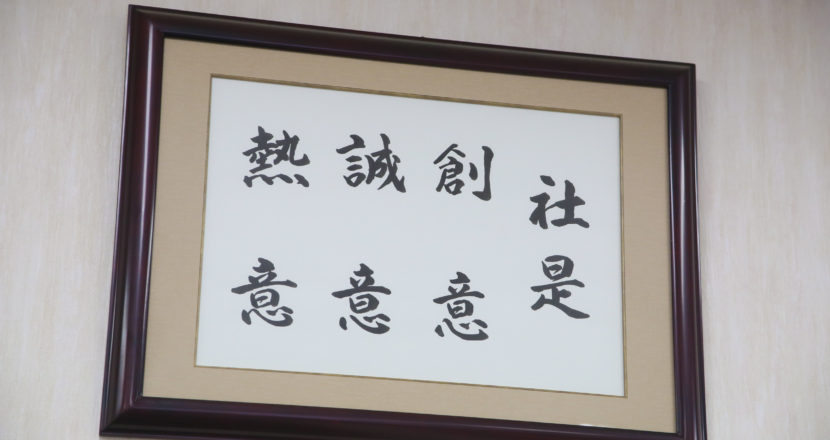 社是
創意
誠意
熱意